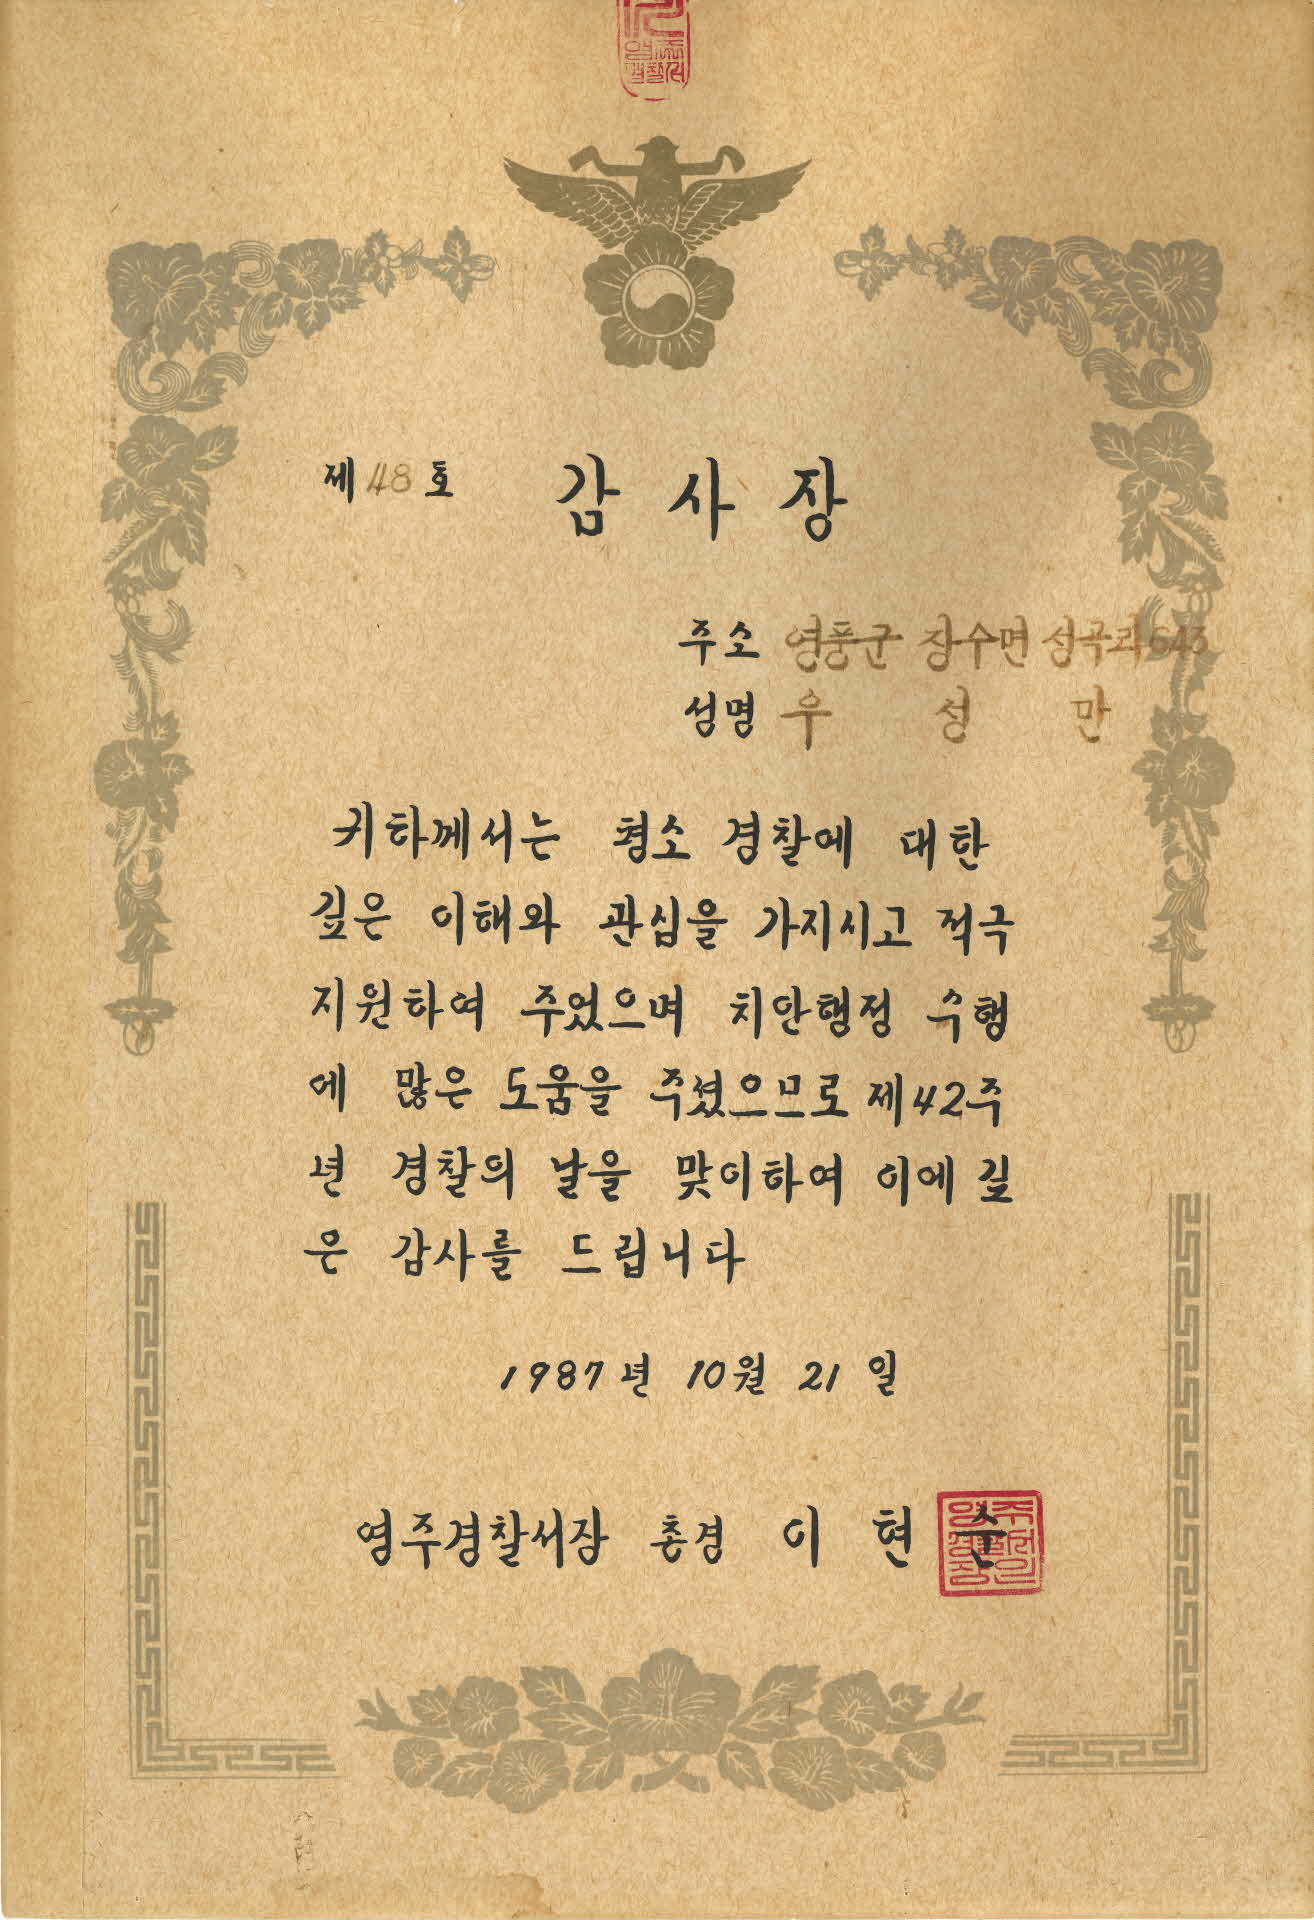 제 48 호 감 사 장
주소 영풍군 장수면 성곡리 643
성명 우 성 만
귀하께서는 평소 경찰에 대한
깊은 이해와 관심을 가지시고 적극
지원하여 주었으며 치안행정 수행
에 많은 도움을 주셨으므로 제42주
년 경찰의 날을 맞이하여 이에 깊
은 감사를 드립니다
1987년 10월 21일
영주경찰서장 총경 이 현 순